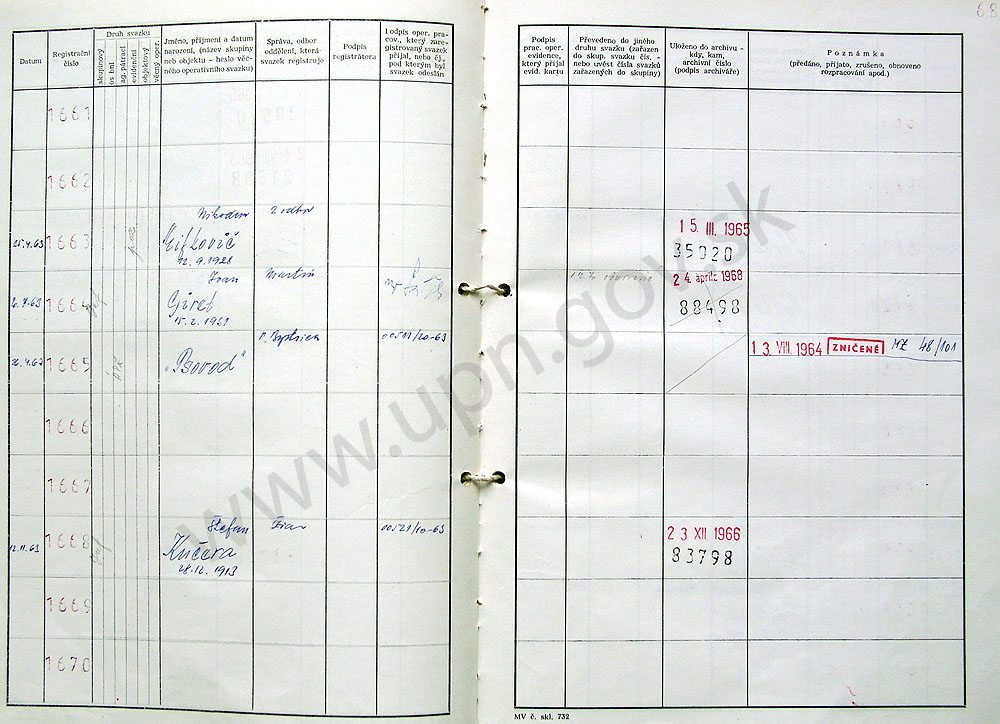 68
Datum
Registrační
číslo
Druh svazku
skupinový
os bní
ag. pátrací
evidenční
objektový
věcný oper.
Jméno, příjmení a datum
narození, (název skupiny
neb objektu - heslo věc-
ného operativního svazku)
Správa, odbor
oddělení, která-
svazek registruje
Podpis
registrátora
Podpis oper. pra-
cov., který zare-
gistrovaný svazek
přijal, nebo čj.,
pod kterým byl
svazek odeslán
Podpis
prac. oper.
evidence,
který přijal
evid. kartu
Převedeno do jiného
druhu svazku (zařazen
do skup. svazku čís. -
nebo uvést čísla svazků
zařazených do skupiny)
Uloženo do archivu -
kdy, kam,
archivní číslo
(podpis archiváře)
Poznámka
(předáno, přijato, zrušeno, obnoveno
rozpracování apod.)
1661
1662
Nikodem 2 odbor
25.4.63 1663 15. III. 1965
12.9.1928 35020
Ivan Martin 24. apríla 1968
1664 Giret 88498
15.2.1931
"Psovod" 00511/20-63
1665 13. VIII. 1964 ZNIČENÉ 48/101
1666
1667
Štefan 00521/10-63
12.11.63 1668 Kučera 23 XII 1966
28.12.1913 83798
1669
1670
MV č. skl. 732
www.upn.gov.sk